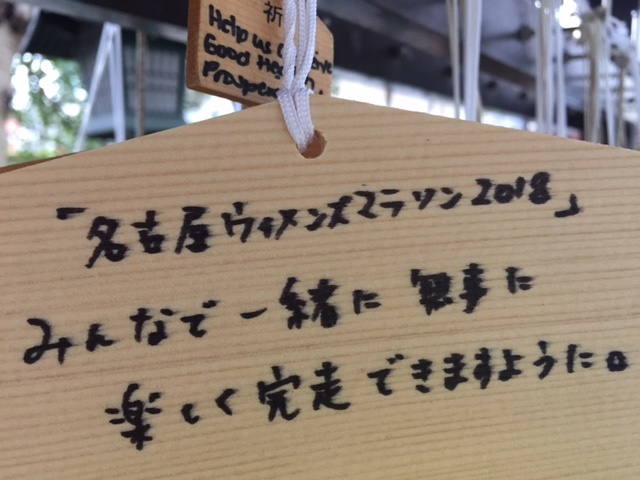 祈
Help us
Good
Prosper
「名古屋ウィメンズマラソン2018」
みんなで一緒に無事に
楽しく完走できますように。